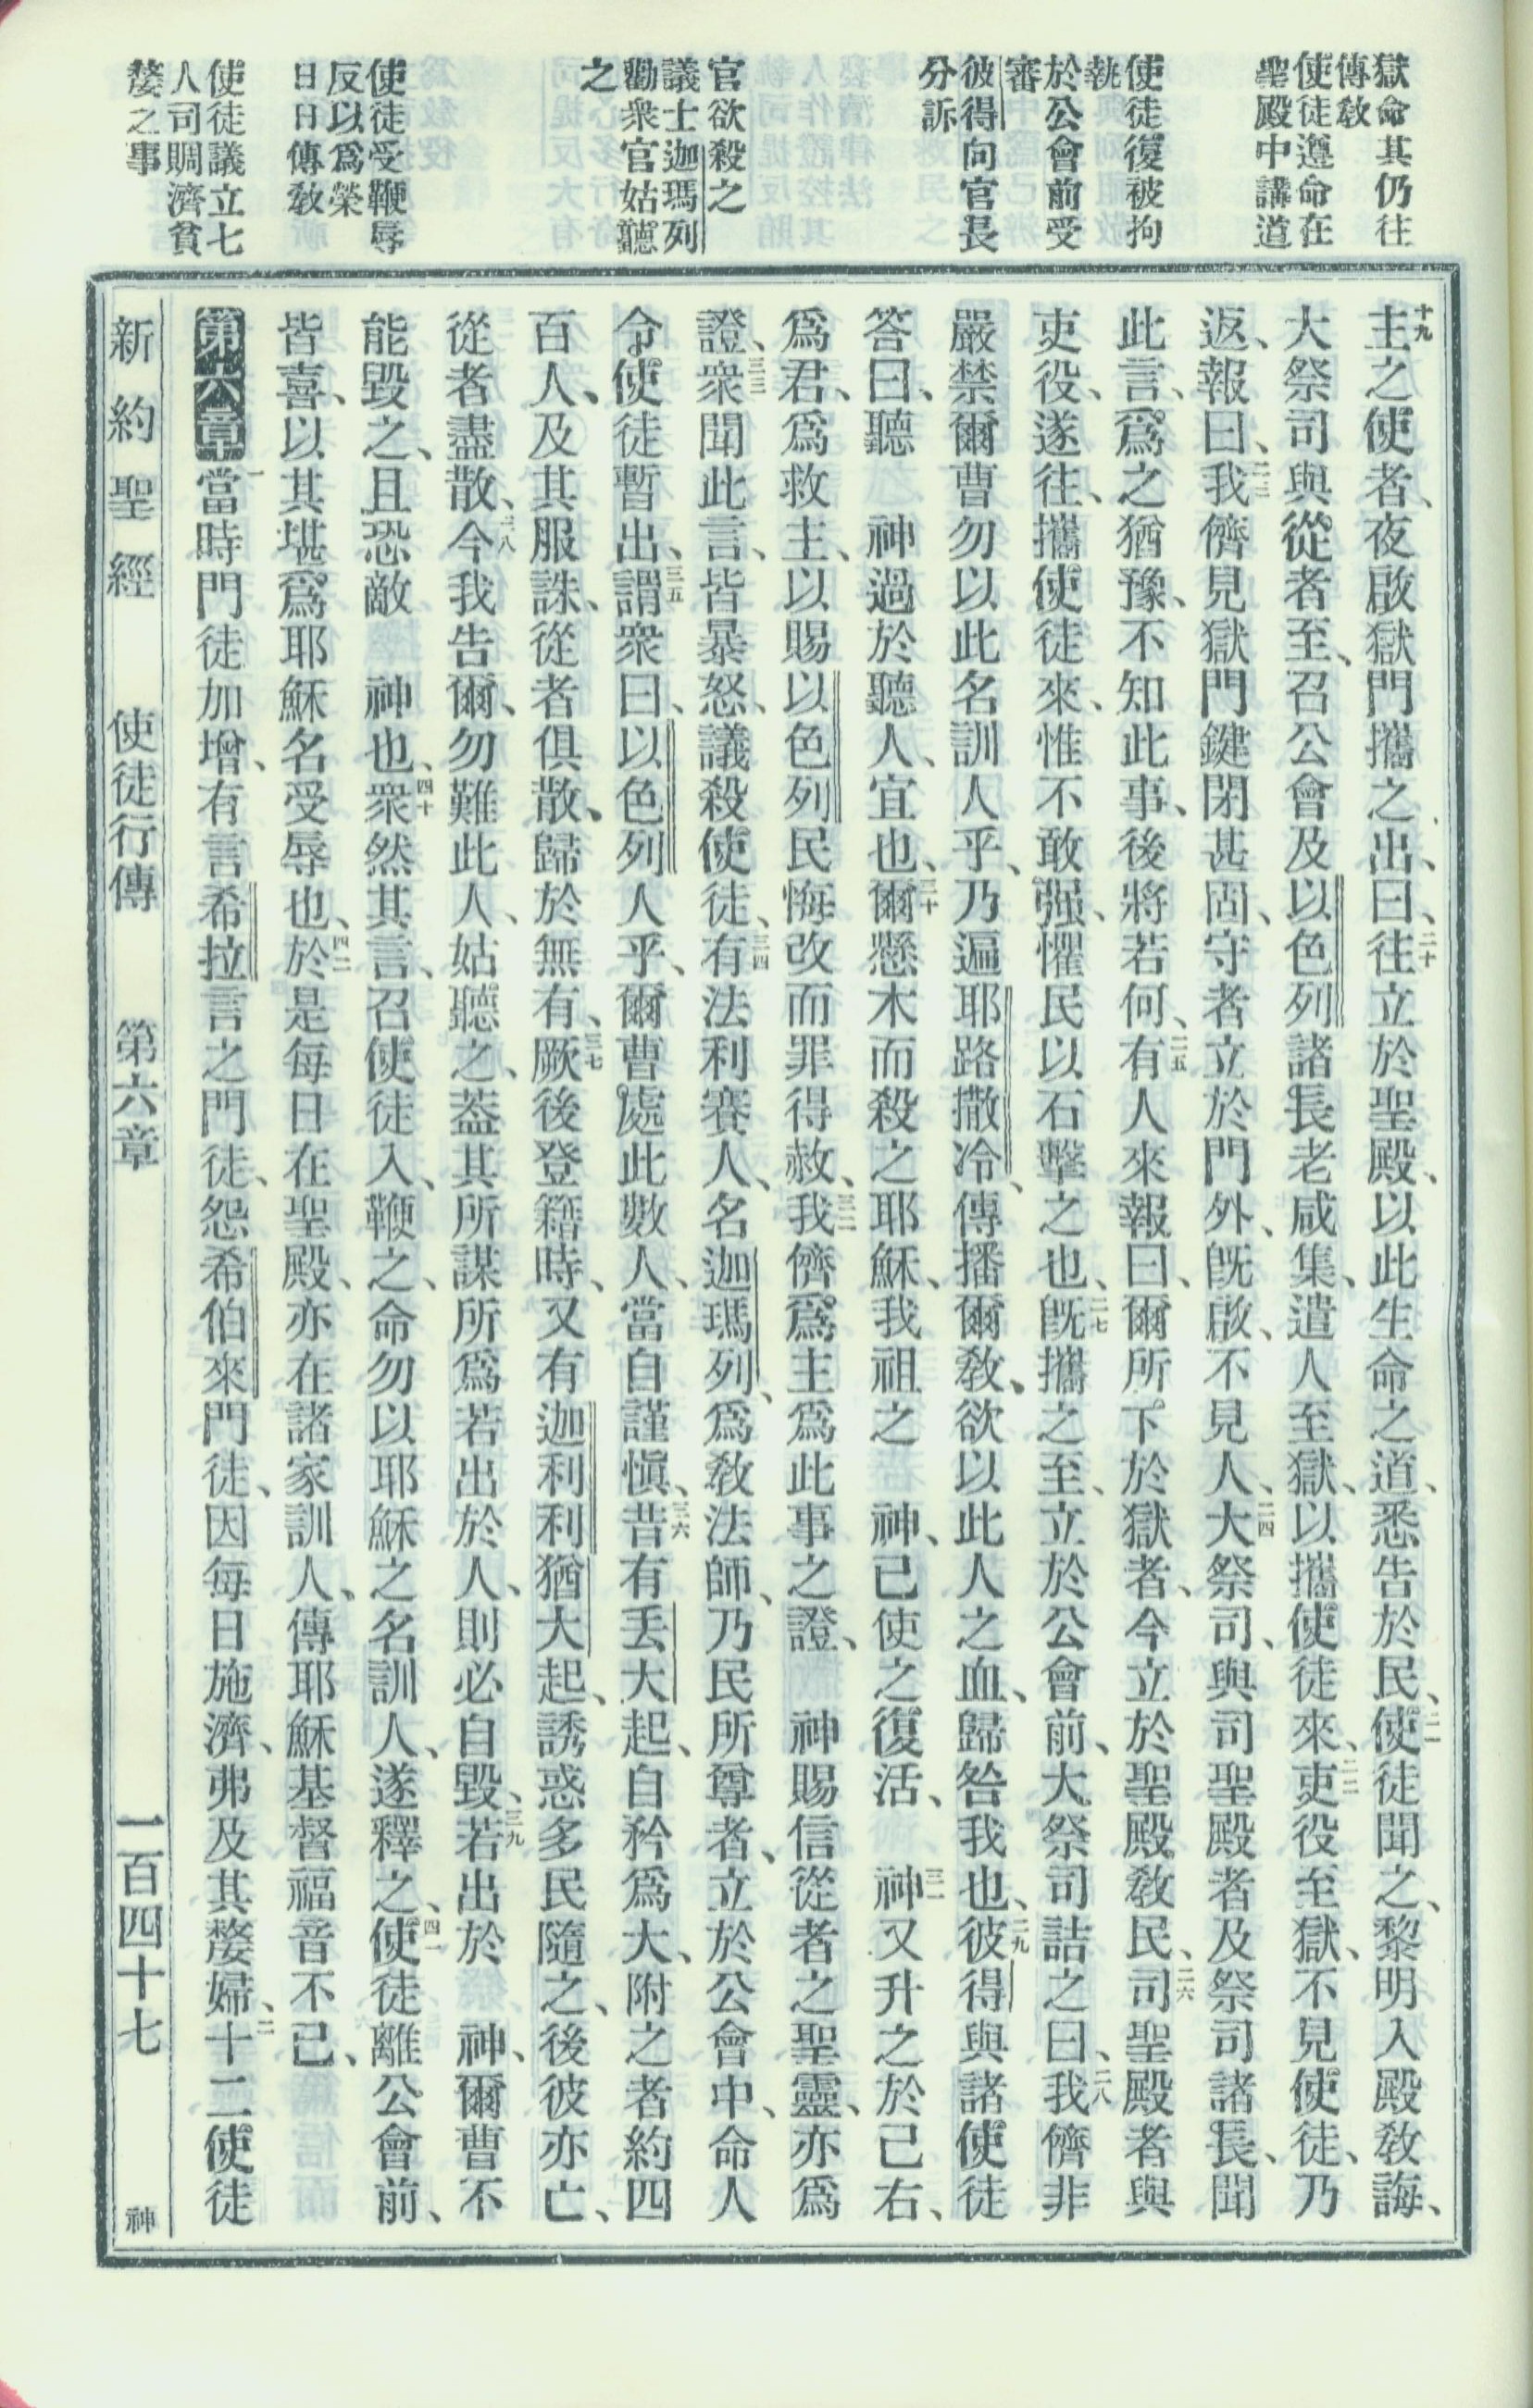 獄命其仍往
傳敎
使徒遵命在
聖殿中講道
使徒復被拘
執
於公會前受
審
彼得向官長
分訴
官欲殺之
議士迦瑪列
勸衆官姑聽
之
使徒受鞭辱
反以爲榮
日日傳敎
使徒議立七
人司賙濟貧
嫠之事
十九主之使者、夜啟獄門攜之出、曰、二十往立於聖殿、以此生命之道、悉告於民、二一使徒聞之、黎明入殿敎誨、
大祭司與從者至、召公會及以色列諸長老咸集、遣人至獄、以攜使徒來、二二吏役至獄、不見使徒、乃
返、報曰、二三我儕見獄門鍵閉甚固、守者立於門外、旣啟、不見人、二四大祭司、與司聖殿者及祭司諸長、聞
此言、爲之猶豫、不知此事、後將若何、二五有人來報曰、爾所下於獄者、今立於聖殿敎民、二六司聖殿者與
吏役、遂往、攜使徒來、惟不敢强、懼民以石擊之也、二七旣攜之至、立於公會前、大祭司詰之曰、二八我儕非
嚴禁爾曹勿以此名訓人乎、乃遍耶路撒冷、傳播爾敎、欲以此人之血、歸咎我也、二九彼得與諸使徒
答曰、聽　神過於聽人、宜也、三十爾懸木而殺之耶穌、我祖之　神、已使之復活、　三一神又升之於己右、
爲君、爲救主、以賜以色列民悔改而罪得赦、三二我儕爲主爲此事之證、　神賜信從者之聖靈、亦爲
證、三三衆聞此言、皆暴怒、議殺使徒、三四有法利賽人、名迦瑪列、爲敎法師、乃民所尊者、立於公會中、命人
令使徒暫出、三五謂衆曰、以色列人乎、爾曹處此數人、當自謹愼、三六昔有丟大起、自矜爲大、附之者約四
百人、及其服誅、從者俱散、歸於無有、三七厥後登籍時、又有迦利利猶大起、誘惑多民隨之、後彼亦亡、
從者盡散、三八今我告爾、勿難此人、姑聽之、葢其所謀所爲若出於人、則必自毀、三九若出於　神、爾曹不
能毀之、且恐敵　神也、四十衆然其言、召使徒入、鞭之、命勿以耶穌之名訓人、遂釋之、四一使徒離公會前、
皆喜、以其堪爲耶穌名受辱也、四二於是每日在聖殿、亦在諸家訓人、傳耶穌基督福音不已、
第六章　一當時門徒加增、有言希拉言之門徒、怨希伯來門徒、因每日施濟、弗及其嫠婦、二十二使徒
新約聖經　使徒行傳　第六章　一百四十七　神